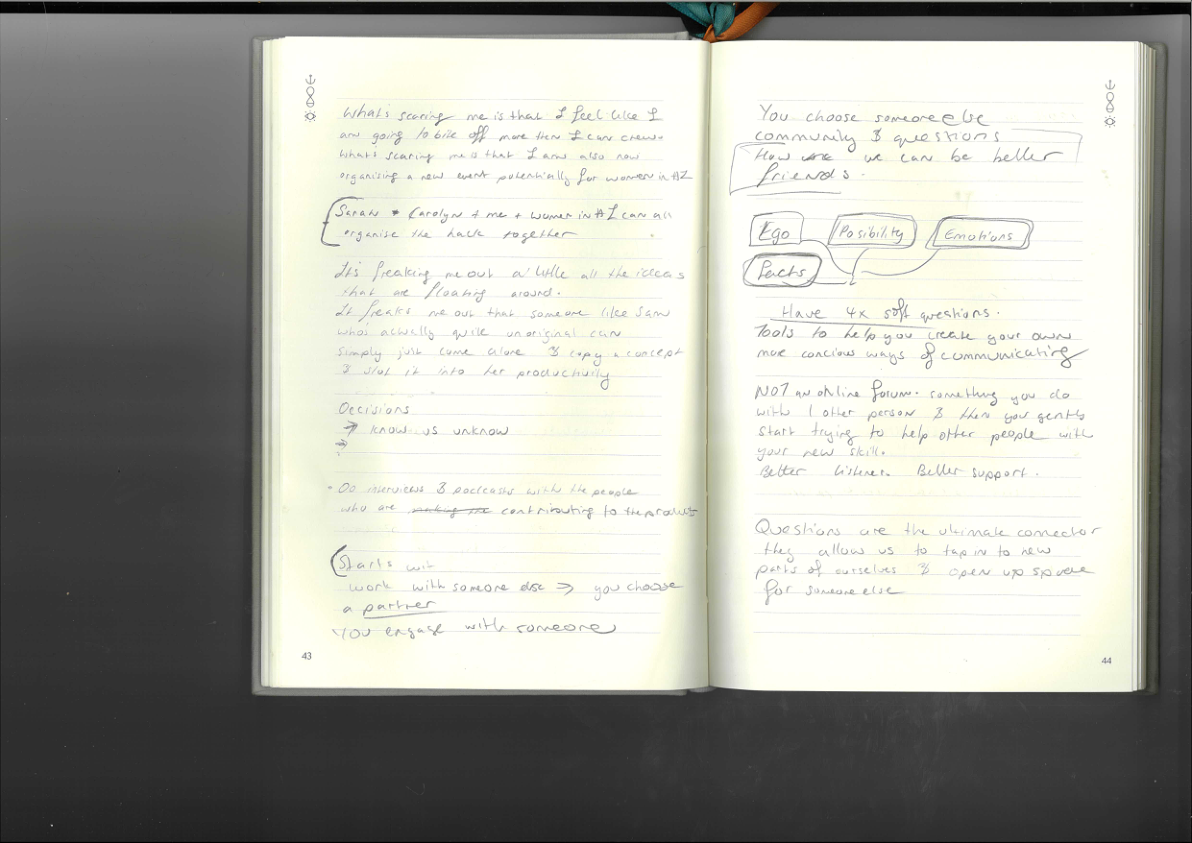 What's scaring me is that I feel like I
am going to bite off more then I can chew.
What's scaring me is that I am also now
organising a new event potentially for women in AI
Sarah + Carolyn + me + women in AI can all
organise the hack together
It's freaking me out a little all the ideas
that are floating around.
It freaks me out that someone like Sam
who's actually quite unoriginal can
simply just come alone & copy a concept
& slot it into her productivity
Decisions
→ know us unknow
→
- Do interviews & podcasts with the people
who are making the contributing to the product
Starts wit
work with someone else → you choose
a partner
You engage with someone
43
You choose someone else
community & questions
How we can be better
friends.
Ego
Posibility
Emotions
Facts
Have 4x soft questions.
Tools to help you create your own
more concious ways of communicating
NOT an online forum. something you do
with 1 other person & then you gently
start trying to help other people with
your new skill.
Better listener. Better support.
Questions are the ultimate connector
they allow us to tap in to new
parts of ourselves & open up space
for someone else
44